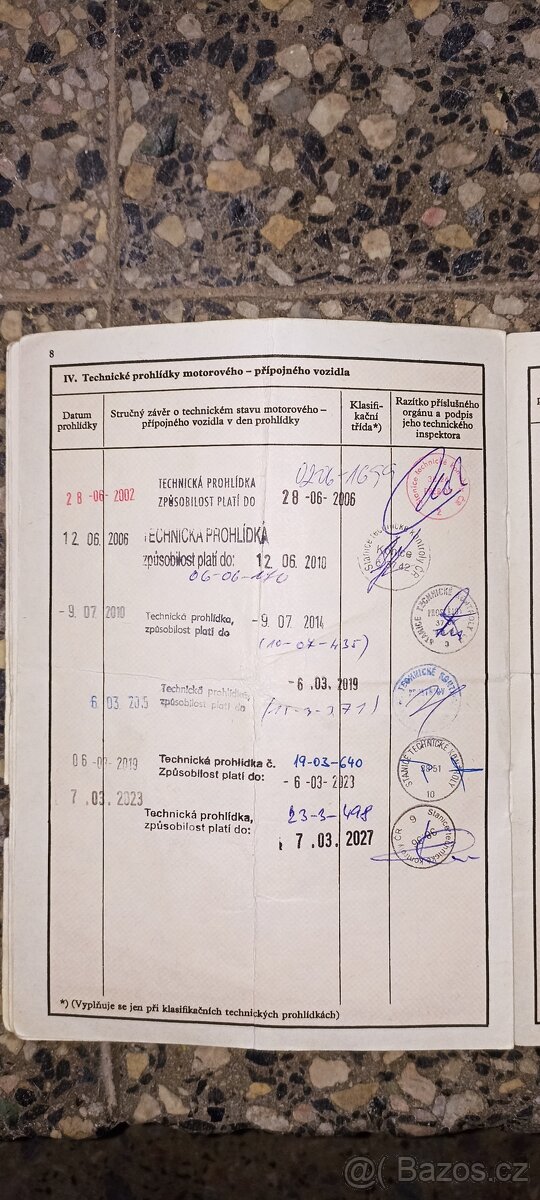 8
IV. Technické prohlídky motorového – přípojného vozidla
Datum prohlídky
Stručný závěr o technickém stavu motorového – přípojného vozidla v den prohlídky
Klasifi-kační třída*)
Razítko příslušného orgánu a podpis jeho technického inspektora
0206-1699
28 -06- 2002 TECHNICKÁ PROHLÍDKA
ZPŮSOBILOST PLATÍ DO 28 -06- 2006
12. 06. 2006 TECHNICKÁ PROHLÍDKA
způsobilost platí do: 12. 06. 2010
06-06-170
Stanice technické kontroly ČR
- 9. 07. 2010 Technická prohlídka, - 9. 07. 2014
způsobilost platí do
(10-07-435)
STANICE TECHNICKÉ KONTROLY
3
Technická prohlídka, - 6. 03. 2019
6. 03. způsobilost platí do
(15-3-371)
TECHNICKÉ
06 -03- 2019 Technická prohlídka č. 19-03-640
Způsobilost platí do: - 6 -03- 2023
STANICE TECHNICKÉ KONTROLY
10
7. 03. 2023 Technická prohlídka, 23-3-498
způsobilost platí do: 7. 03. 2027
Stanice technické kontroly ČR 6
*) (Vyplňuje se jen při klasifikačních technických prohlídkách)
@( Bazos.cz